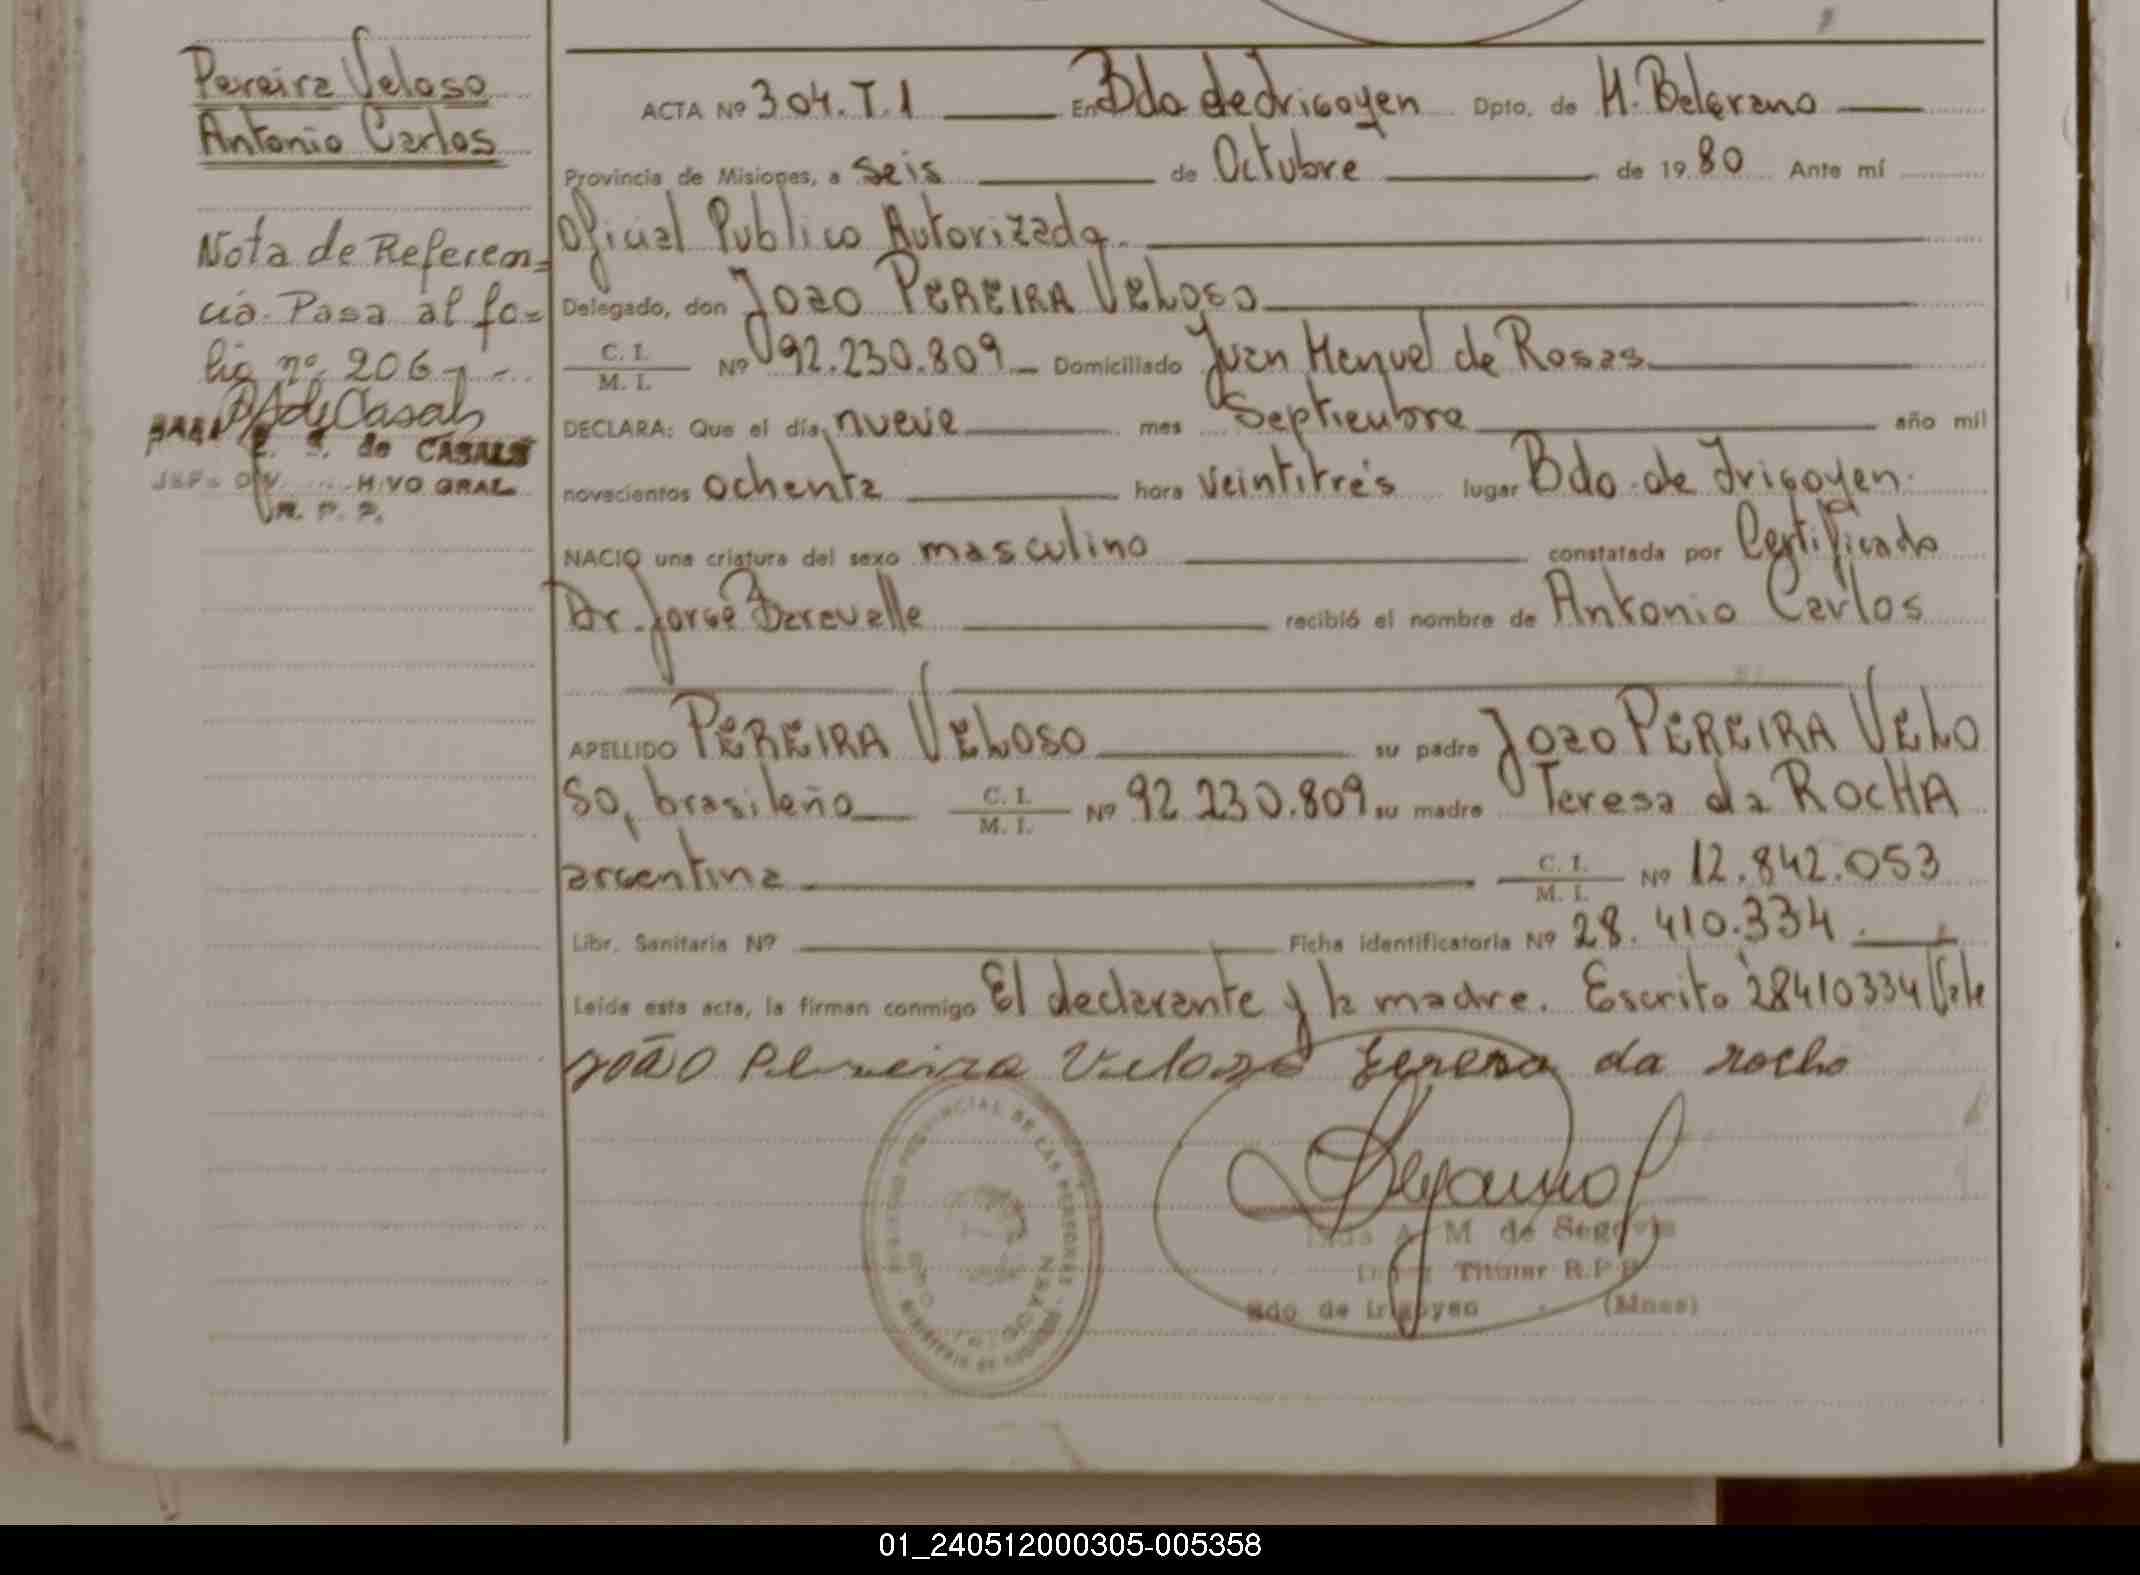 Pereira Veloso
Antonio Carlos
Nota de Referen=
cia. Pasa al fo=
lio nº 206 - -
de CASALS
HIVO GRAL
R. P. P.
ACTA Nº 304. T. 1 En Bdo de Irigoyen Dpto. de M. Belgrano
Provincia de Misiones, a seis de Octubre de 1980 Ante mí
Oficial Publico Autorizada.
Delegado, don Joao PEREIRA VELOSO
C. I. / M. I. Nº 92.230.809 Domiciliado Juan Manuel de Rosas
DECLARA: Que el día nueve mes Septiembre año mil
novecientos ochenta hora veintitrés lugar Bdo. de Irigoyen.
NACIO una criatura del sexo masculino constatada por Certificado
Dr. Jorge Baravalle recibió el nombre de Antonio Carlos
APELLIDO PEREIRA VELOSO su padre Joao PEREIRA VELO
so, brasileño C. I. / M. I. Nº 92 230.809 su madre Teresa da ROCHA
argentina C. I. / M. I. Nº 12.842.053
Libr. Sanitaria Nº Ficha identificatoria Nº 28.410.334.
Leída esta acta, la firman conmigo El declarante y la madre. Escrito 28410334 Vale
João Pereira Veloso Teresa da rocha
A. M de Segovia
Titular R.P.P
Bdo de Irigoyen (Mnes)
01_240512000305-005358